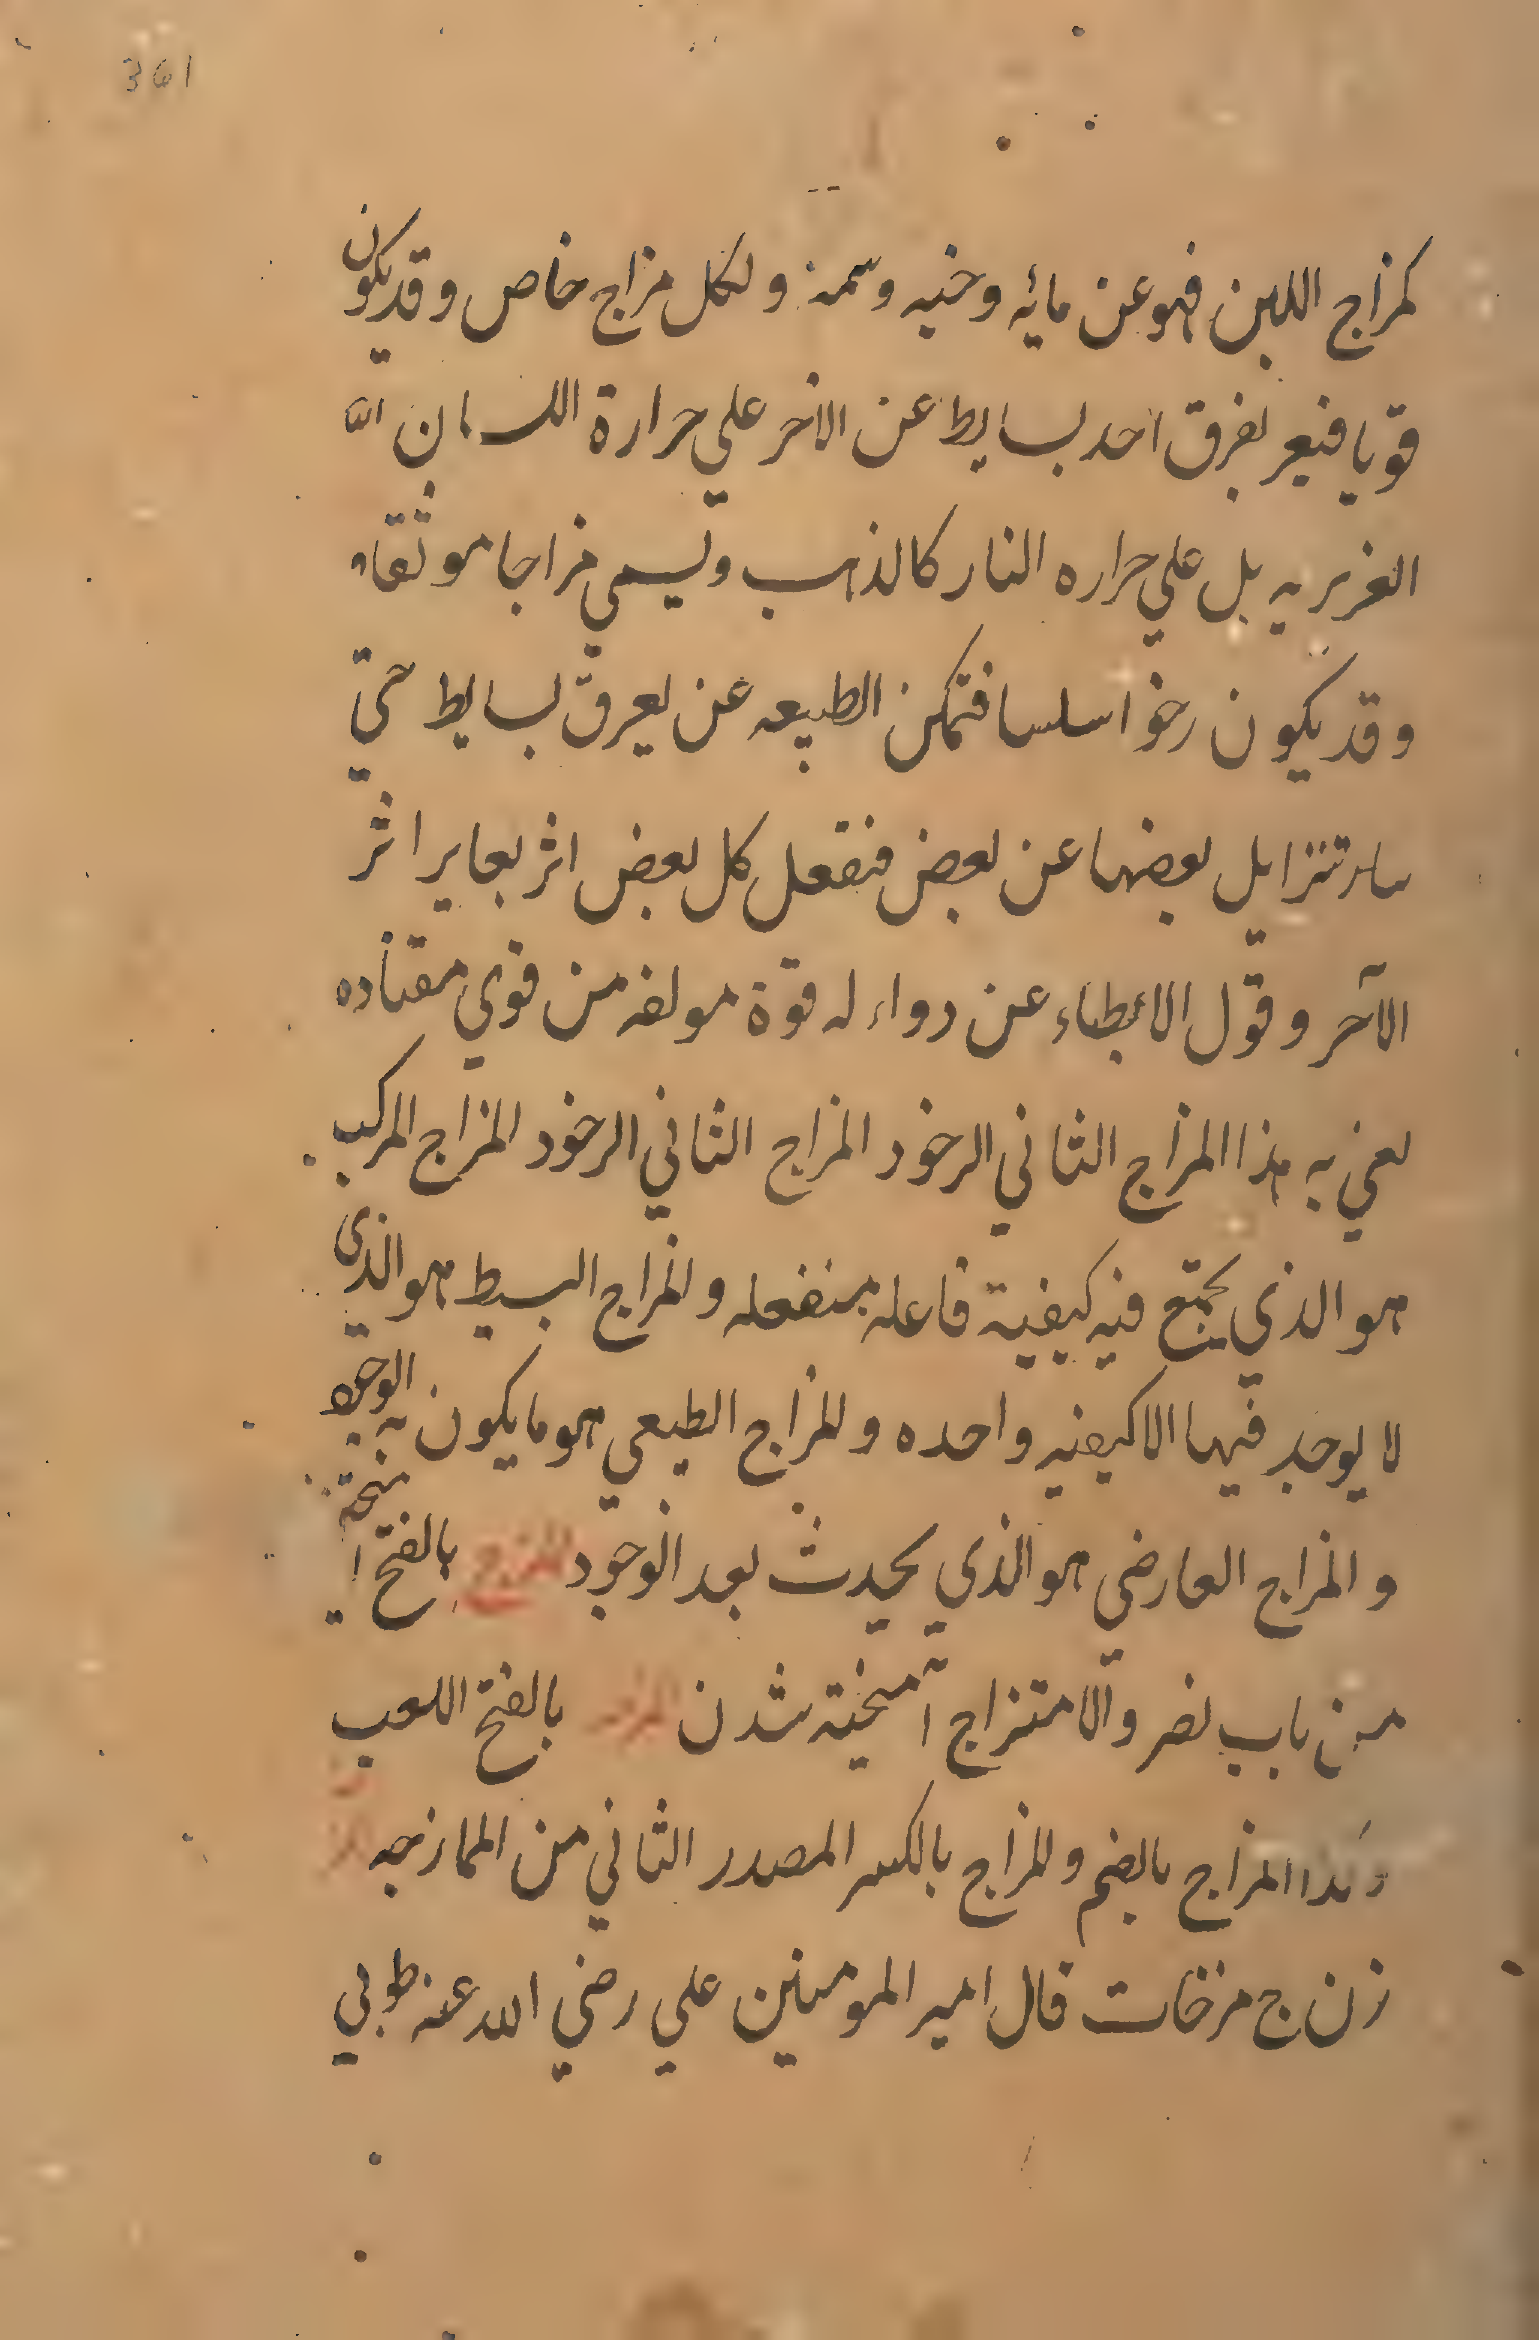 361
كمزاج اللبن فهو عن مائه وجنيه وسمنه ولكل مزاج خاص وقد يكون
قويا فيعر لفرق احد لبسايط عن الاخر علي حرارة الانسان
الغريريه بل علي حراره النار كالذهب ويسمي مزاجا موثقا
وقد يكون رخوا سلسا فتمكن الطبيعه عن لعرق لبسايط حتي
تتزايل بعضها عن بعض فنفعل كل بعض اثر بعاير اثر
الآخر وقول الاطباء عن دواء له قوة مولفه من قوي مقتاده
لعني به هذا المزاج الثاني الرخود المزاج الثاني الرخود المزاج المركب
هو الذي يجتمع فيه كيفية فاعله منفعله والمزاج البسيط هو الذي
لا يوجد فيها الا كيفيه واحده والمزاج الطبعي هو ما يكون به الوجود
والمزاج العارضي هو الذي يحدث بعد الوجود المزج بالفتح
من باب نصر والامتزاج آميخته شدن بالفتح اللعب
وكذا المزاج بالضم والمزاج بالكسر المصدر الثاني من الممازجه
زن ج مزخات قال امير المومنين علي رضي الله عنه طوبي